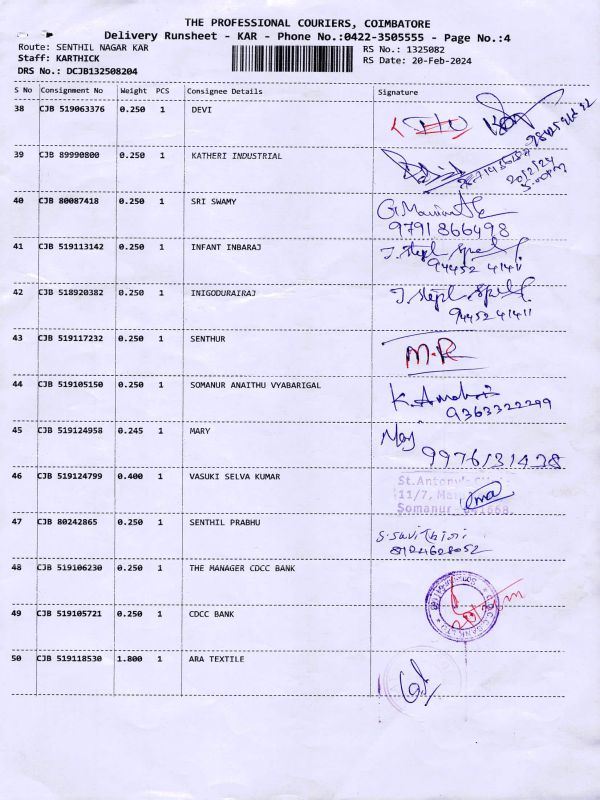 THE PROFESSIONAL COURIERS, COIMBATORE
Delivery Runsheet - KAR - Phone No.:0422-3505555 - Page No.:4
Route: SENTHIL NAGAR KAR RS No.: 1325082
Staff: KARTHICK RS Date: 20-Feb-2024
DRS No.: DCJB132508204
S No Consignment No Weight PCS Consignee Details Signature
38 CJB 519063376 0.250 1 DEVI
39 CJB 89990800 0.250 1 KATHERI INDUSTRIAL
20/2/24
40 CJB 80087418 0.250 1 SRI SWAMY
9791866498
41 CJB 519113142 0.250 1 INFANT INBARAJ
94452 41411
42 CJB 518920382 0.250 1 INIGODURAIRAJ
94452 41411
43 CJB 519117232 0.250 1 SENTHUR M.R
44 CJB 519105150 0.250 1 SOMANUR ANAITHU VYABARIGAL
9363322299
45 CJB 519124958 0.245 1 MARY Mary
9976131438
46 CJB 519124799 0.400 1 VASUKI SELVA KUMAR St.Antony's
11/7,
Somanur - 641668
47 CJB 80242865 0.250 1 SENTHIL PRABHU S.Savithiri
48 CJB 519106230 0.250 1 THE MANAGER CDCC BANK
49 CJB 519105721 0.250 1 CDCC BANK
50 CJB 519118530 1.800 1 ARA TEXTILE